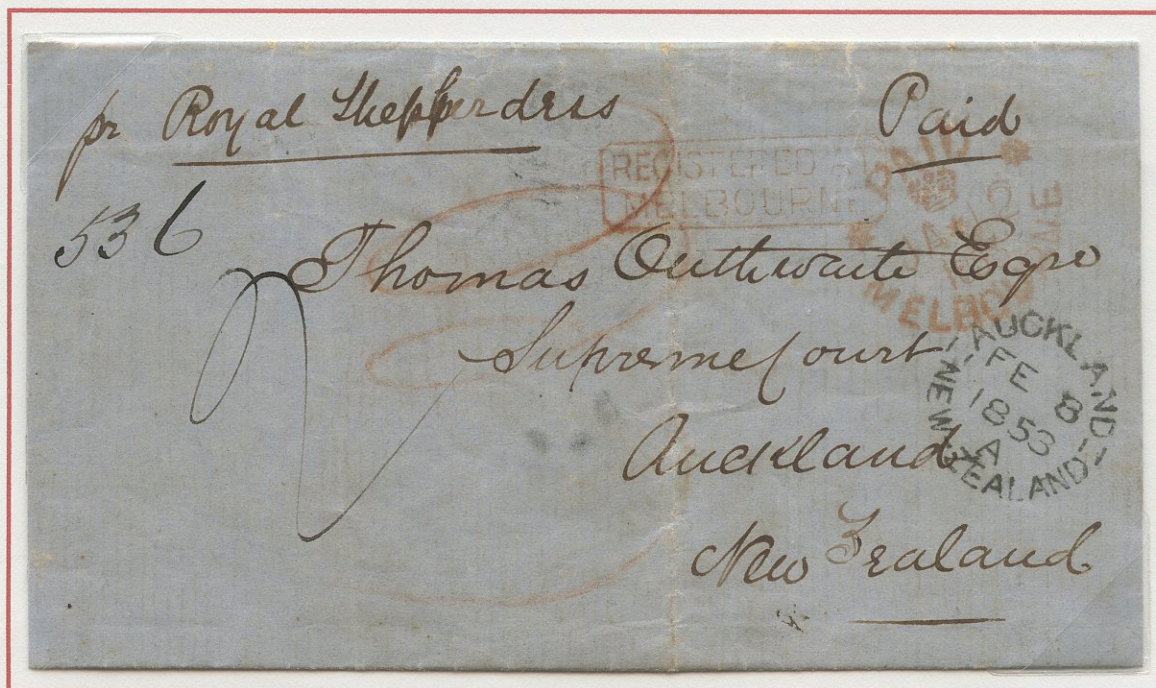 pr Royal Shepperdess
Paid
REGISTERED
MELBOURNE
PAID
MELBOURNE
536
Thomas Outhwaite Eqre
Supreme Court
Auckland
New Zealand
AUCKLAND
FE 8
1853
A
NEW ZEALAND